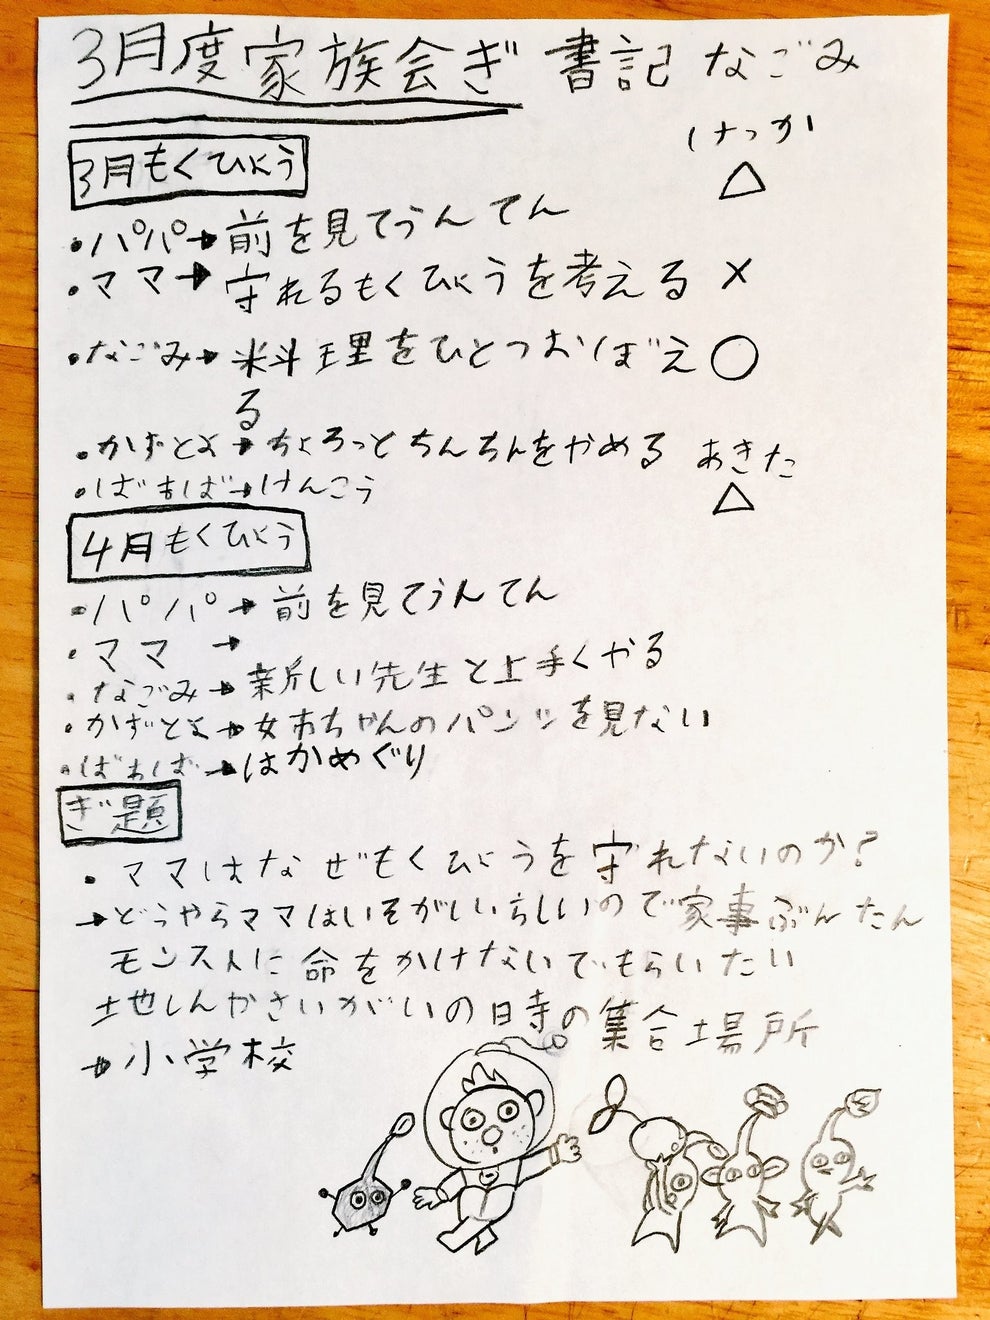 3月度家族会ぎ 書記 なごみ
けっか
3月もくひょう
・パパ→前を見てうんてん △
・ママ→守れるもくひょうを考える ×
・なごみ→料理をひとつおぼえ ○
る
・かずとよ→ちょろっとちんちんをやめる あきた
・ばぁば→けんこう △
4月もくひょう
・パパ→前を見てうんてん
・ママ→
・なごみ→新しい先生と上手くやる
・かずとよ→女市ちゃんのパンツを見ない
・ばぁば→はかめぐり
ぎ題
・ママはなぜもくひょうを守れないのか?
→どうやらママはいそがしいらしいので家事ぶんたん
モンストに命をかけないでもらいたい
土地しんやさいがいの時の集合場所
→小学校